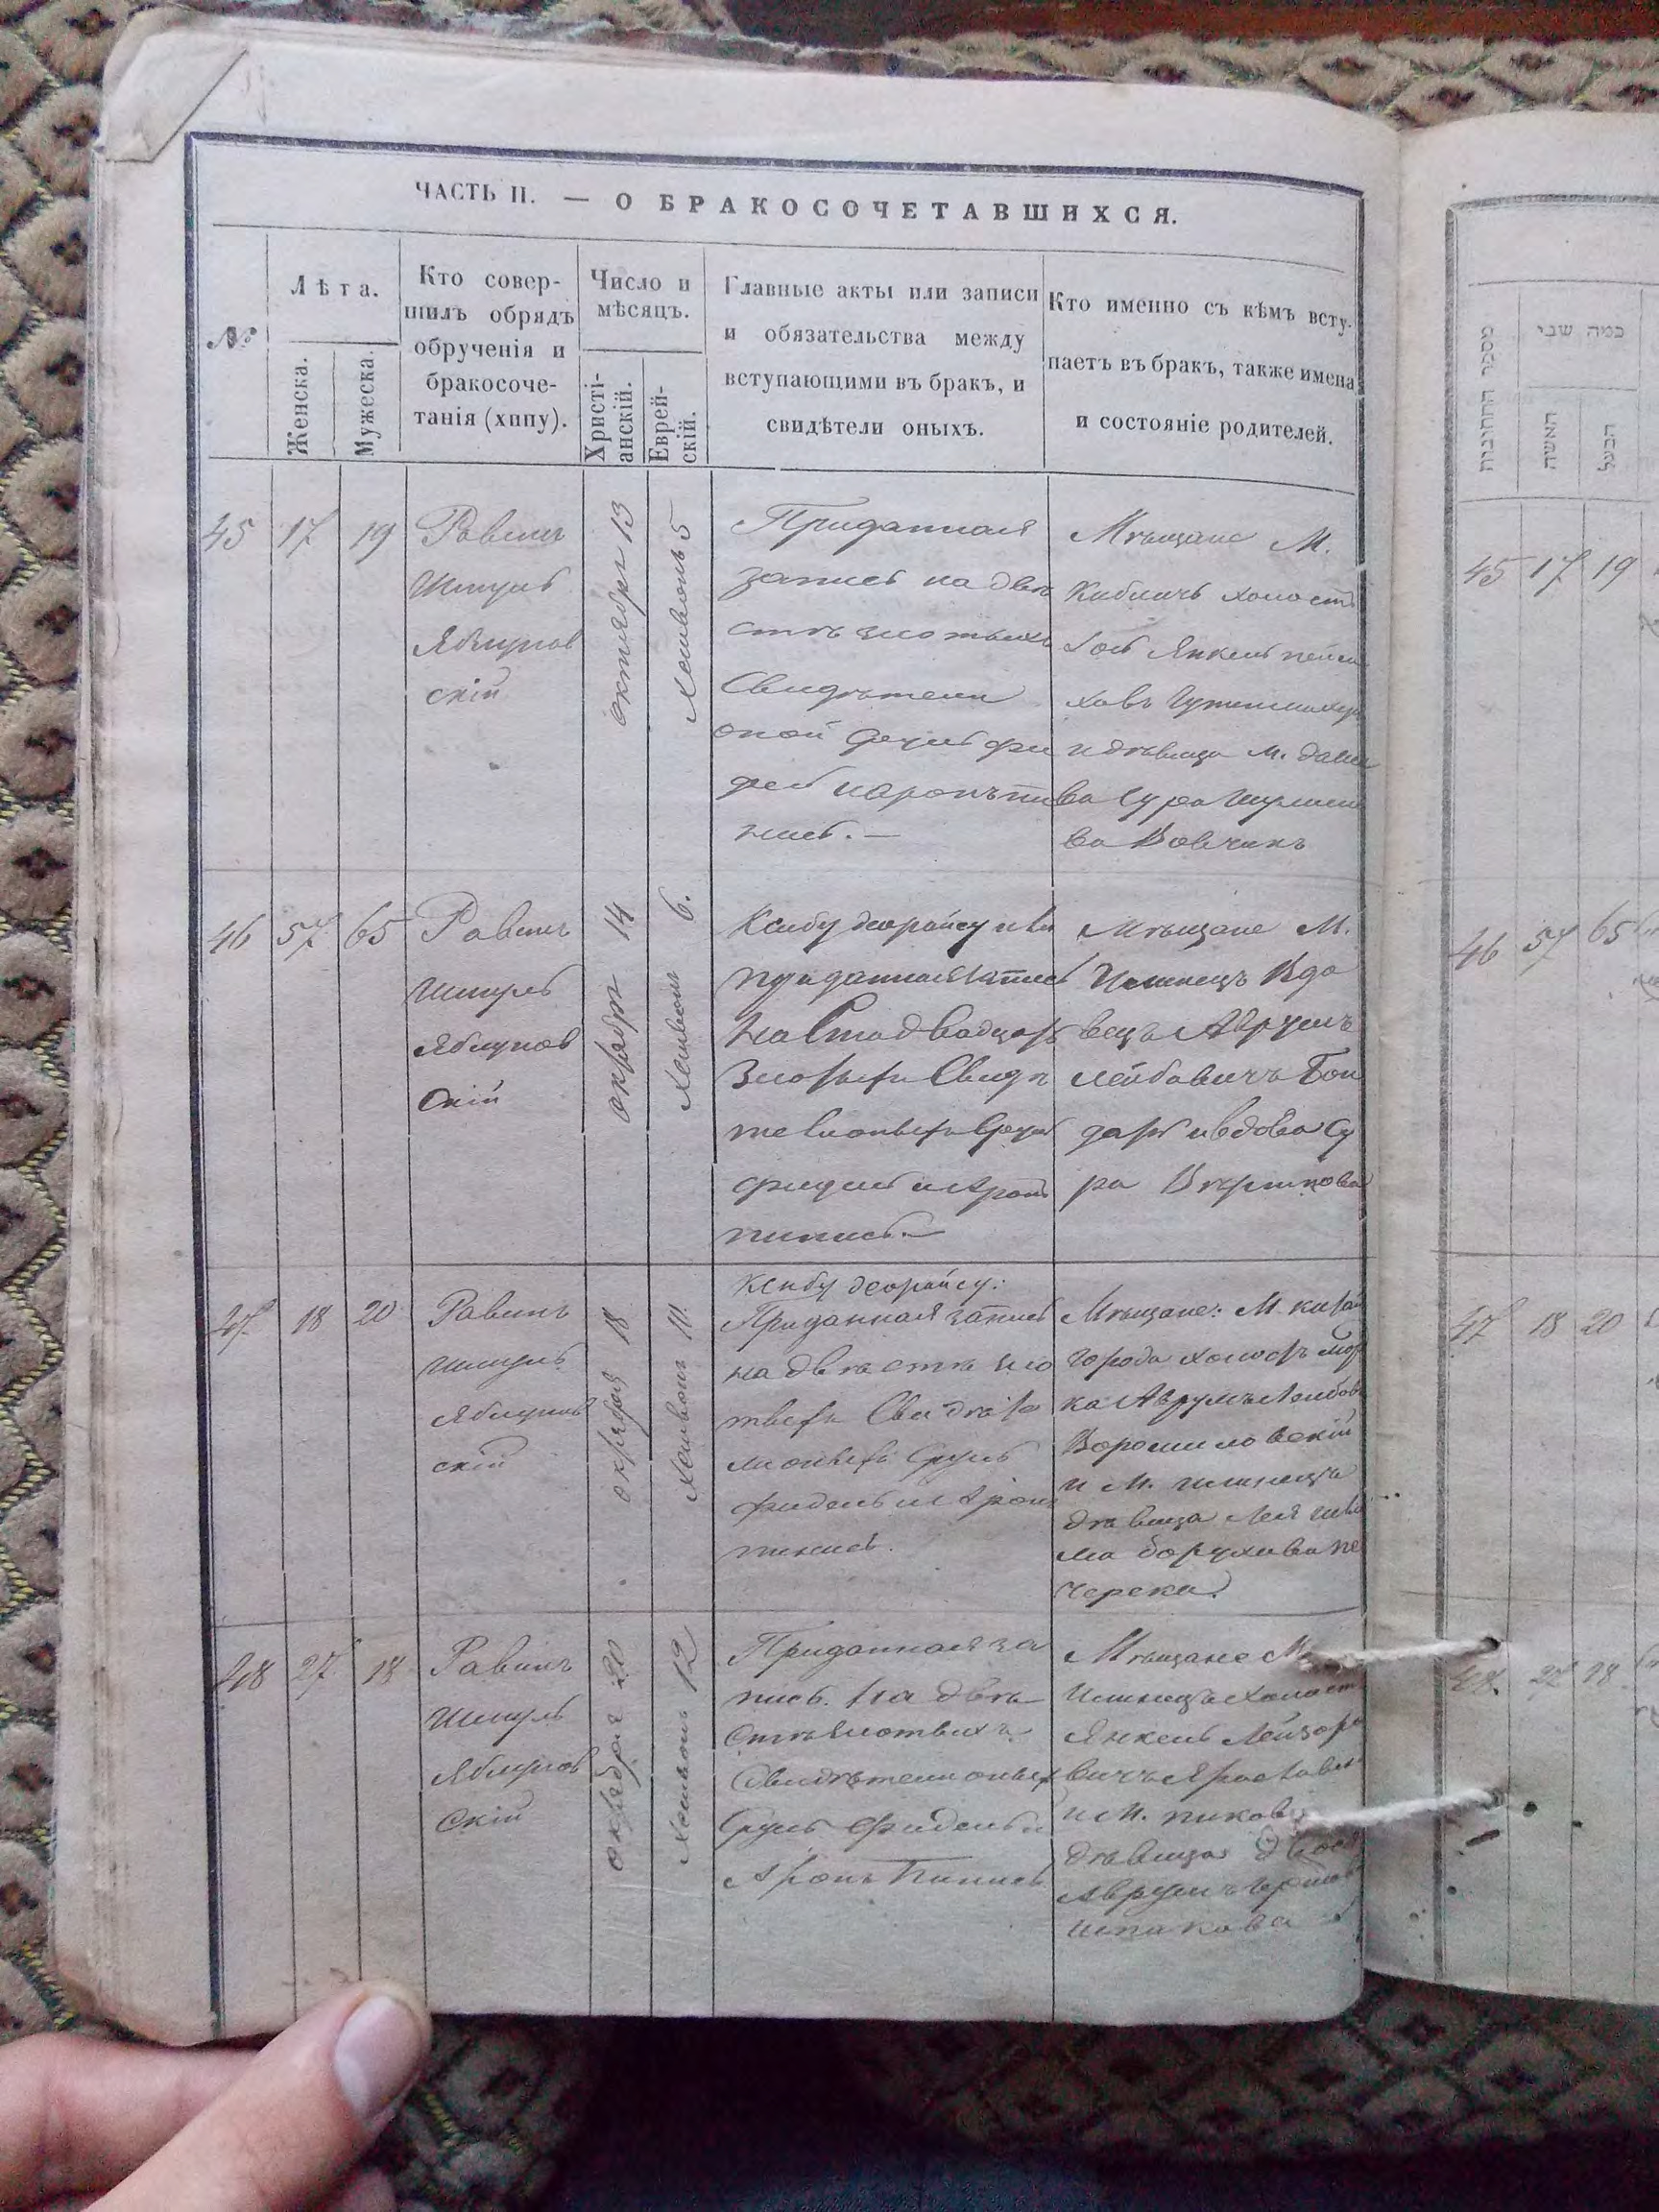 ЧАСТЬ II. — О БРАКОСОЧЕТАВШИХСЯ.
№
Лѣта.
Женска.
Мужеска.
Кто совер-
шилъ обрядъ
обрученія и
бракосоче-
танія (хипу).
Число и
мѣсяцъ.
Христі-
анскій.
Еврей-
скій.
Главные акты или записи
и обязательства между
вступающими въ бракъ, и
свидѣтели оныхъ.
Кто именно съ кѣмъ всту-
паетъ въ бракъ, также имена
и состояніе родителей.
45
17
19
Равинъ
Шмуль
Яблунов
скій
октября 13
Хешвонъ 5
Приданная
запись на двѣ
стѣ злотыхъ
Свидѣтели
оной Сруль Фи
дель и Аронъ Пи
нись. —
Мѣщане М.
холост
Янкель Пейса
ховъ
и дѣвица М.
ва Сура
ва Вовчикъ
46
57
65
Равинъ
Шмуль
Яблунов
скій
октября 14
Хешвонъ 6.
Ксибу деорайсу или
приданная запись
на Сто двадцать
Злотыхъ Свидѣ
тели оныхъ Сруль
Фидель и Аронъ
пинись. —
Мѣщане М.
Илинецъ Вдо
вецъ Аврумъ
Лейбовичъ Бон
дарь и вдова Су
ра
47
18
20
Равинъ
Шмуль
Яблунов
скій
октября 18
Хешвонъ 10.
Ксибу деорайсу:
Приданная запись
на двѣстѣ зло
тыхъ Свидѣте
ли оныхъ Сруль
Фидель и Аронъ
пинись.
Мѣщане: М. китай
города холостъ Мор
ка Аврумъ Лейбов
Ворошиловскій
и М. Илинецъ
дѣвица Лея
ма Борухова Пе
черска
48
27
18
Равинъ
Шмуль
Яблунов
Скій
октября 20
Хешвонъ 12
Приданная за
пись. На двѣ
стѣ злотыхъ
Свидѣтели оныхъ
Сруль Фидель и
Аронъ Пинись
Мѣщане М.
Илинецъ холост
Янкель Лейзоро
вичъ
и М. пиковъ
дѣвица Двося
Аврумъ
шпакова
מספר החתונות
כמה שני
האשה
הבעל
45
17
19
46
57
65
47
18
20
48.
27
18